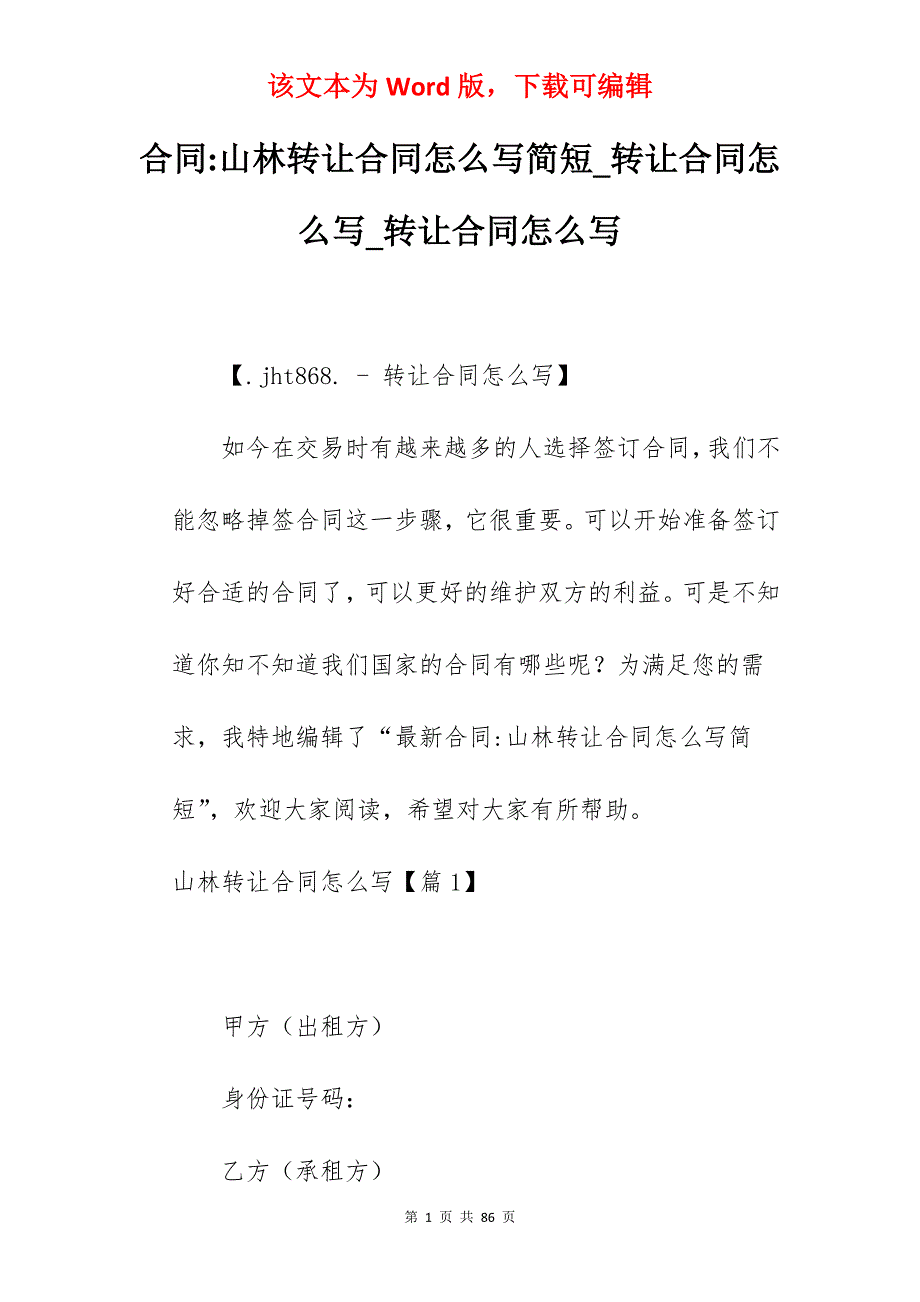 该文本为 Word 版，下载可编辑
合同:山林转让合同怎么写简短_转让合同怎
么写_转让合同怎么写
【.jht868. - 转让合同怎么写】
如今在交易时有越来越多的人选择签订合同，我们不
能忽略掉签合同这一步骤，它很重要。可以开始准备签订
好合适的合同了，可以更好的维护双方的利益。可是不知
道你知不知道我们国家的合同有哪些呢？为满足您的需
求，我特地编辑了“最新合同:山林转让合同怎么写简
短”，欢迎大家阅读，希望对大家有所帮助。
山林转让合同怎么写【篇1】
甲方（出租方）
身份证号码：
乙方（承租方）
第 1 页 共 86 页